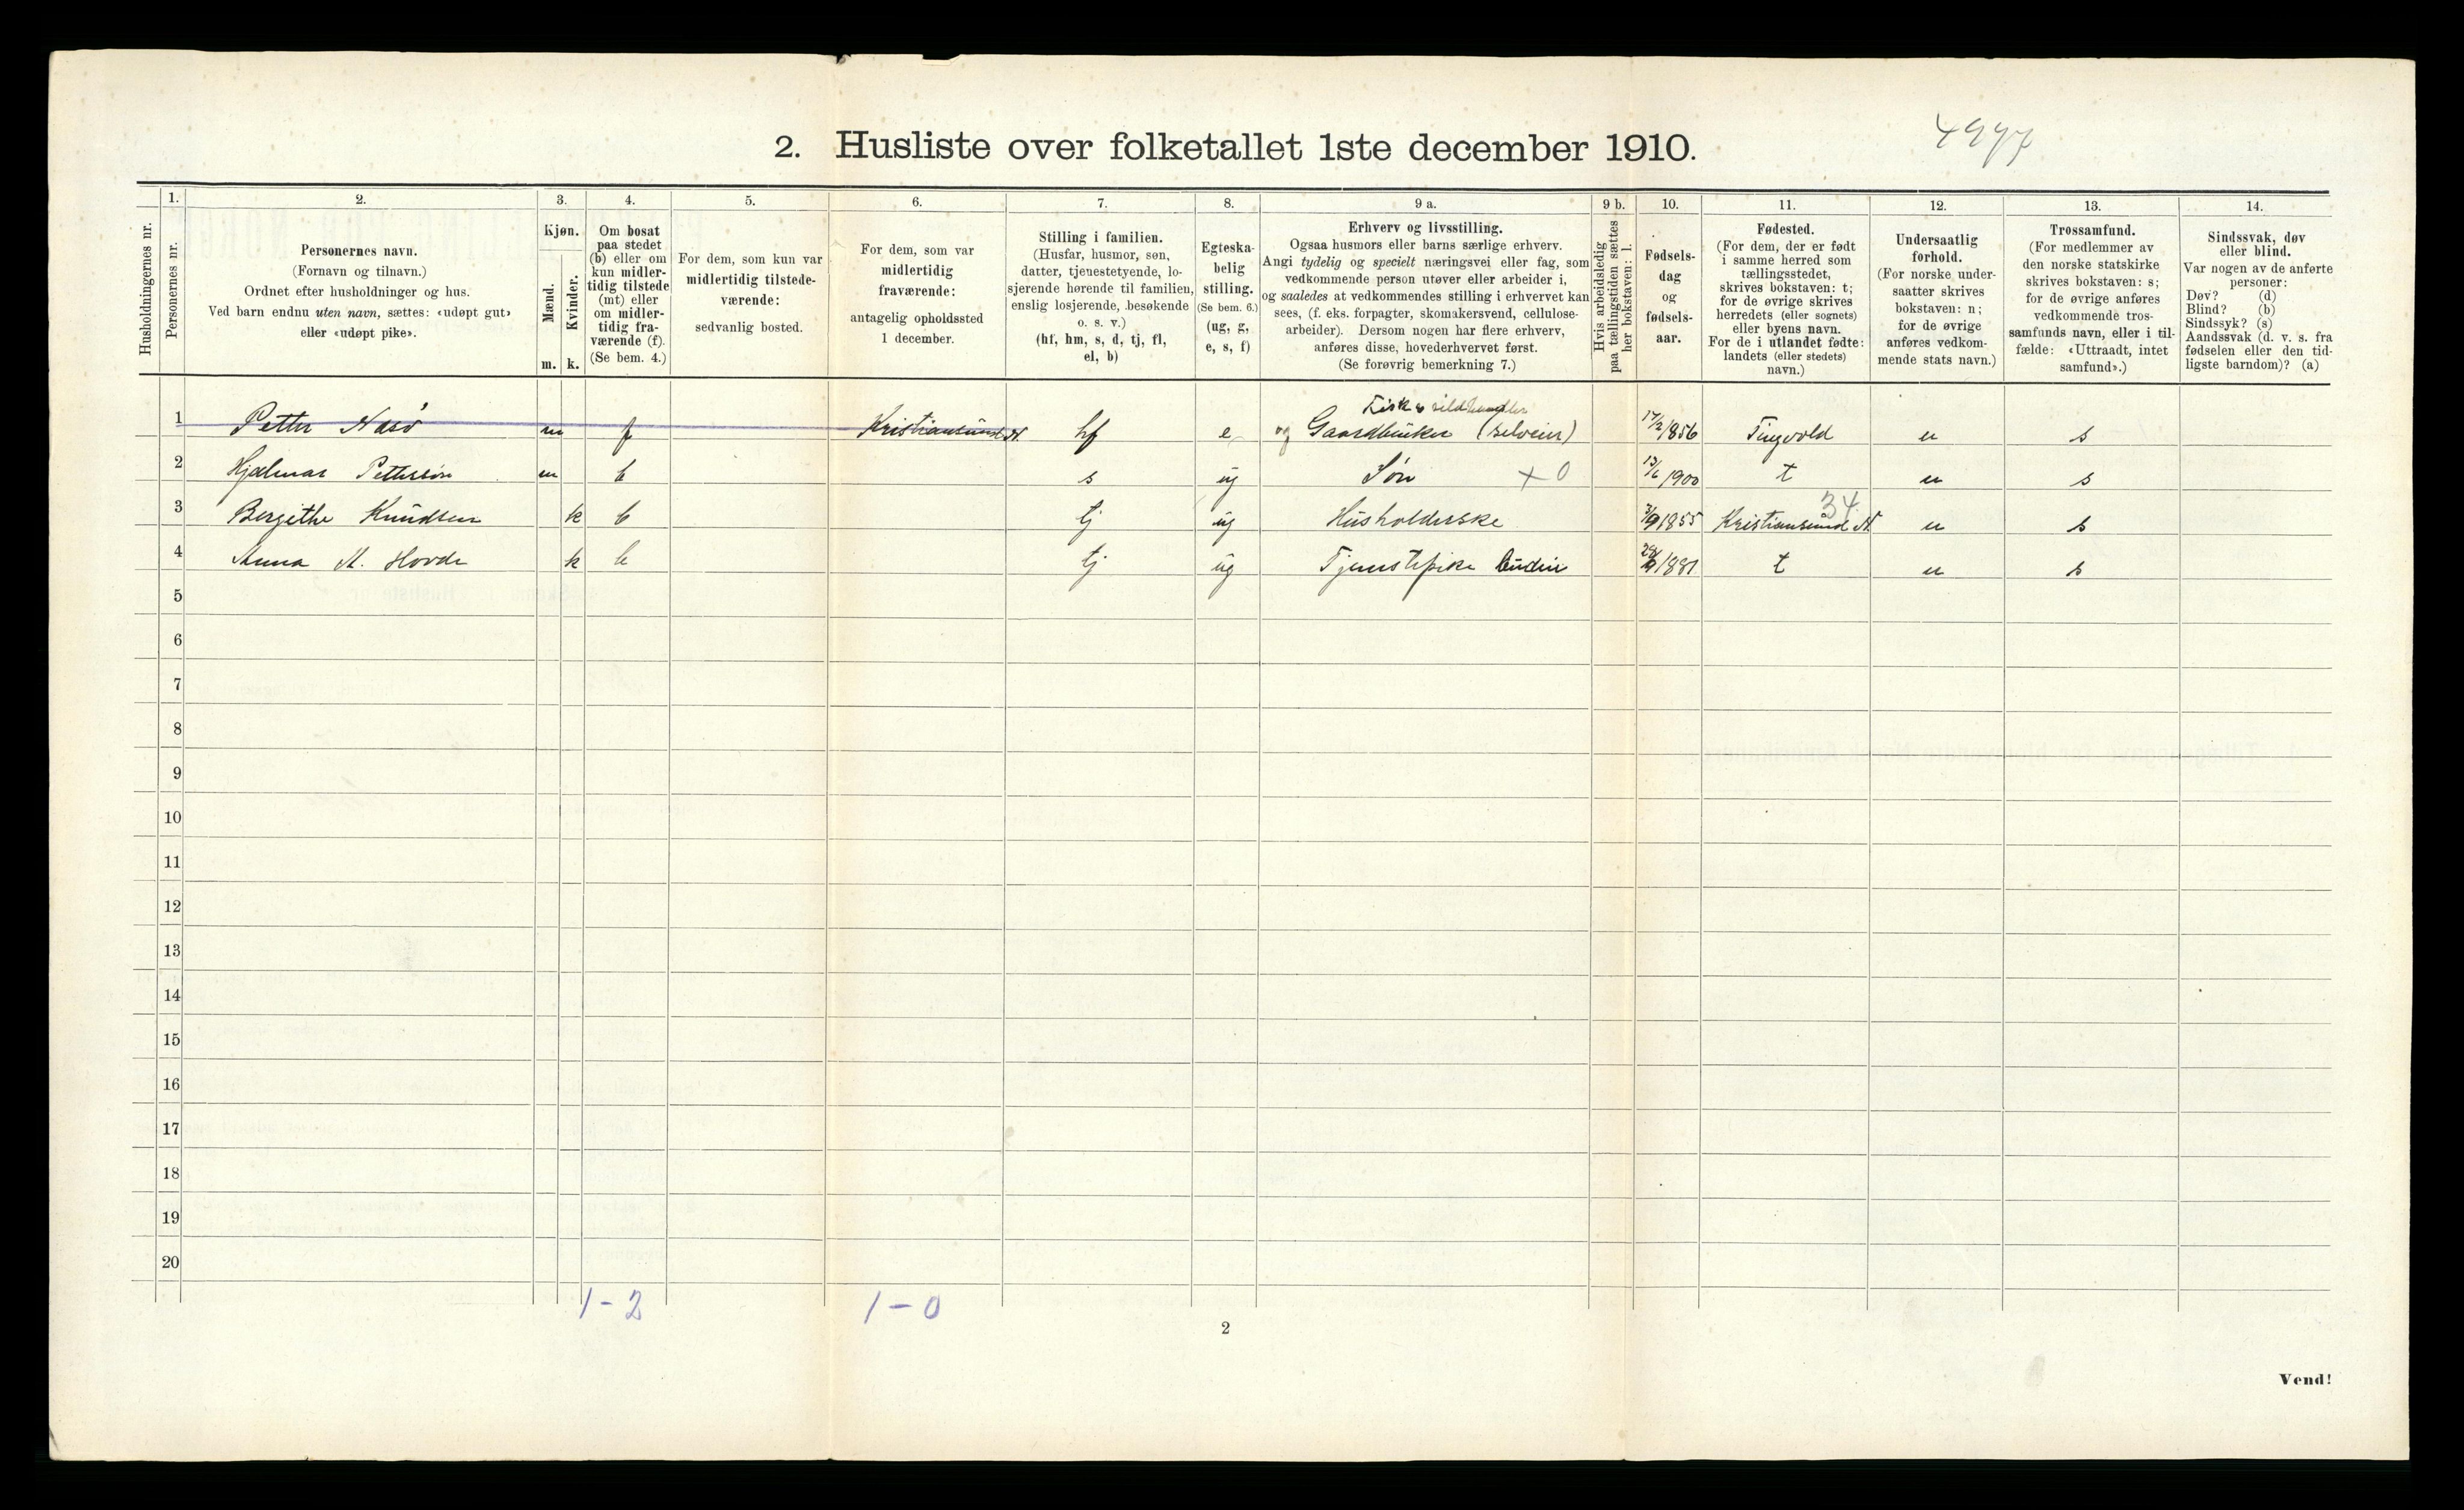 2. Husliste over folketallet 1ste december 1910.
4997
Husholdningernes nr.
1.
Personernes nr.
2.
Personernes navn.
(Fornavn og tilnavn.)
Ordnet efter husholdninger og hus.
Ved barn endnu uten navn, sættes: «udøpt gut»
eller «udøpt pike».
3.
Kjøn.
Mænd.
Kvinder.
m. k.
4.
Om bosat
paa stedet
(b) eller om
kun midler-
tidig tilstede
(mt) eller
om midler-
tidig fra-
værende (f).
(Se bem. 4.)
5.
For dem, som kun var
midlertidig tilstede-
værende:
sedvanlig bosted.
6.
For dem, som var
midlertidig
fraværende:
antagelig opholdssted
1 december.
7.
Stilling i familien.
(Husfar, husmor, søn,
datter, tjenestetyende, lo-
sjerende hørende til familien,
enslig losjerende, besøkende
o. s. v.)
(hf, hm, s, d, tj, fl,
el, b)
8.
Egteska-
belig
stilling.
(Se bem. 6.)
(ug, g,
e, s, f)
9 a.
Erhverv og livsstilling.
Ogsaa husmors eller barns særlige erhverv.
Angi tydelig og specielt næringsvei eller fag, som
vedkommende person utøver eller arbeider i,
og saaledes at vedkommendes stilling i erhvervet kan
sees, (f. eks. forpagter, skomakersvend, cellulose-
arbeider). Dersom nogen har flere erhverv,
anføres disse, hovederhvervet først.
(Se forøvrig bemerkning 7.)
9 b.
Hvis arbeidsledig
paa tællingstiden sættes
her bokstaven: l.
10.
Fødsels-
dag
og
fødsels-
aar.
11.
Fødested.
(For dem, der er født
i samme herred som
tællingsstedet,
skrives bokstaven: t;
for de øvrige skrives
herredets (eller sognets)
eller byens navn.
For de i utlandet fødte:
landets (eller stedets)
navn.)
12.
Undersaatlig
forhold.
(For norske under-
saatter skrives
bokstaven: n;
for de øvrige
anføres vedkom-
mende stats navn.)
13.
Trossamfund.
(For medlemmer av
den norske statskirke
skrives bokstaven: s;
for de øvrige anføres
vedkommende tros-
samfunds navn, eller i til-
fælde: «Uttraadt, intet
samfund».)
14.
Sindssvak, døv
eller blind.
Var nogen av de anførte
personer:
Døv? (d)
Blind? (b)
Sindssyk? (s)
Aandssvak (d. v. s. fra
fødselen eller den tid-
ligste barndom)? (a)
Fisk & sildhandler
1 Petter Nasö m f Kristiansund N. hf e og Gaardbruker (selveier) 17/2 1856 Tingvold n s
2 Hjalmar Pettersön m b s ug Sön × 0 13/6 1900 t n s
34
3 Bergithe Knudsen k b tj ug Husholderske 3/9 1855 Kristiansund N. n s
4 Anna M. Hovde k b tj ug Tjenestepike budeie 1881 t n s
5
6
7
8
9
10
11
12
13
14
15
16
17
18
19
20
1 - 2 1 - 0
2
Vend!